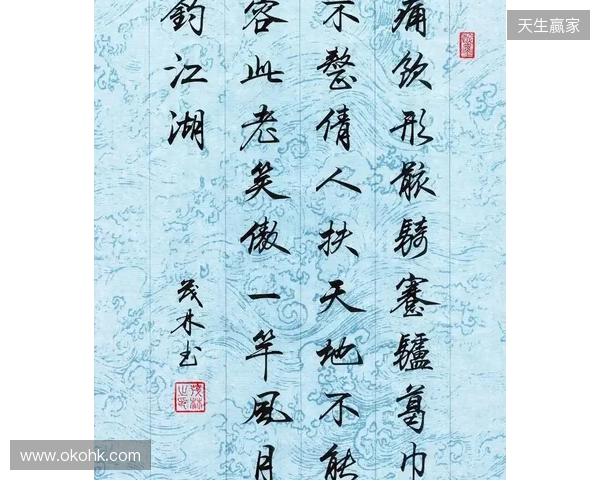 天生赢家
痛飲形骸騎蹇驢葛巾
不整倩人扶天地不能
容此老笑傲一竿風月
釣江湖
茂林书
www.okohk.com